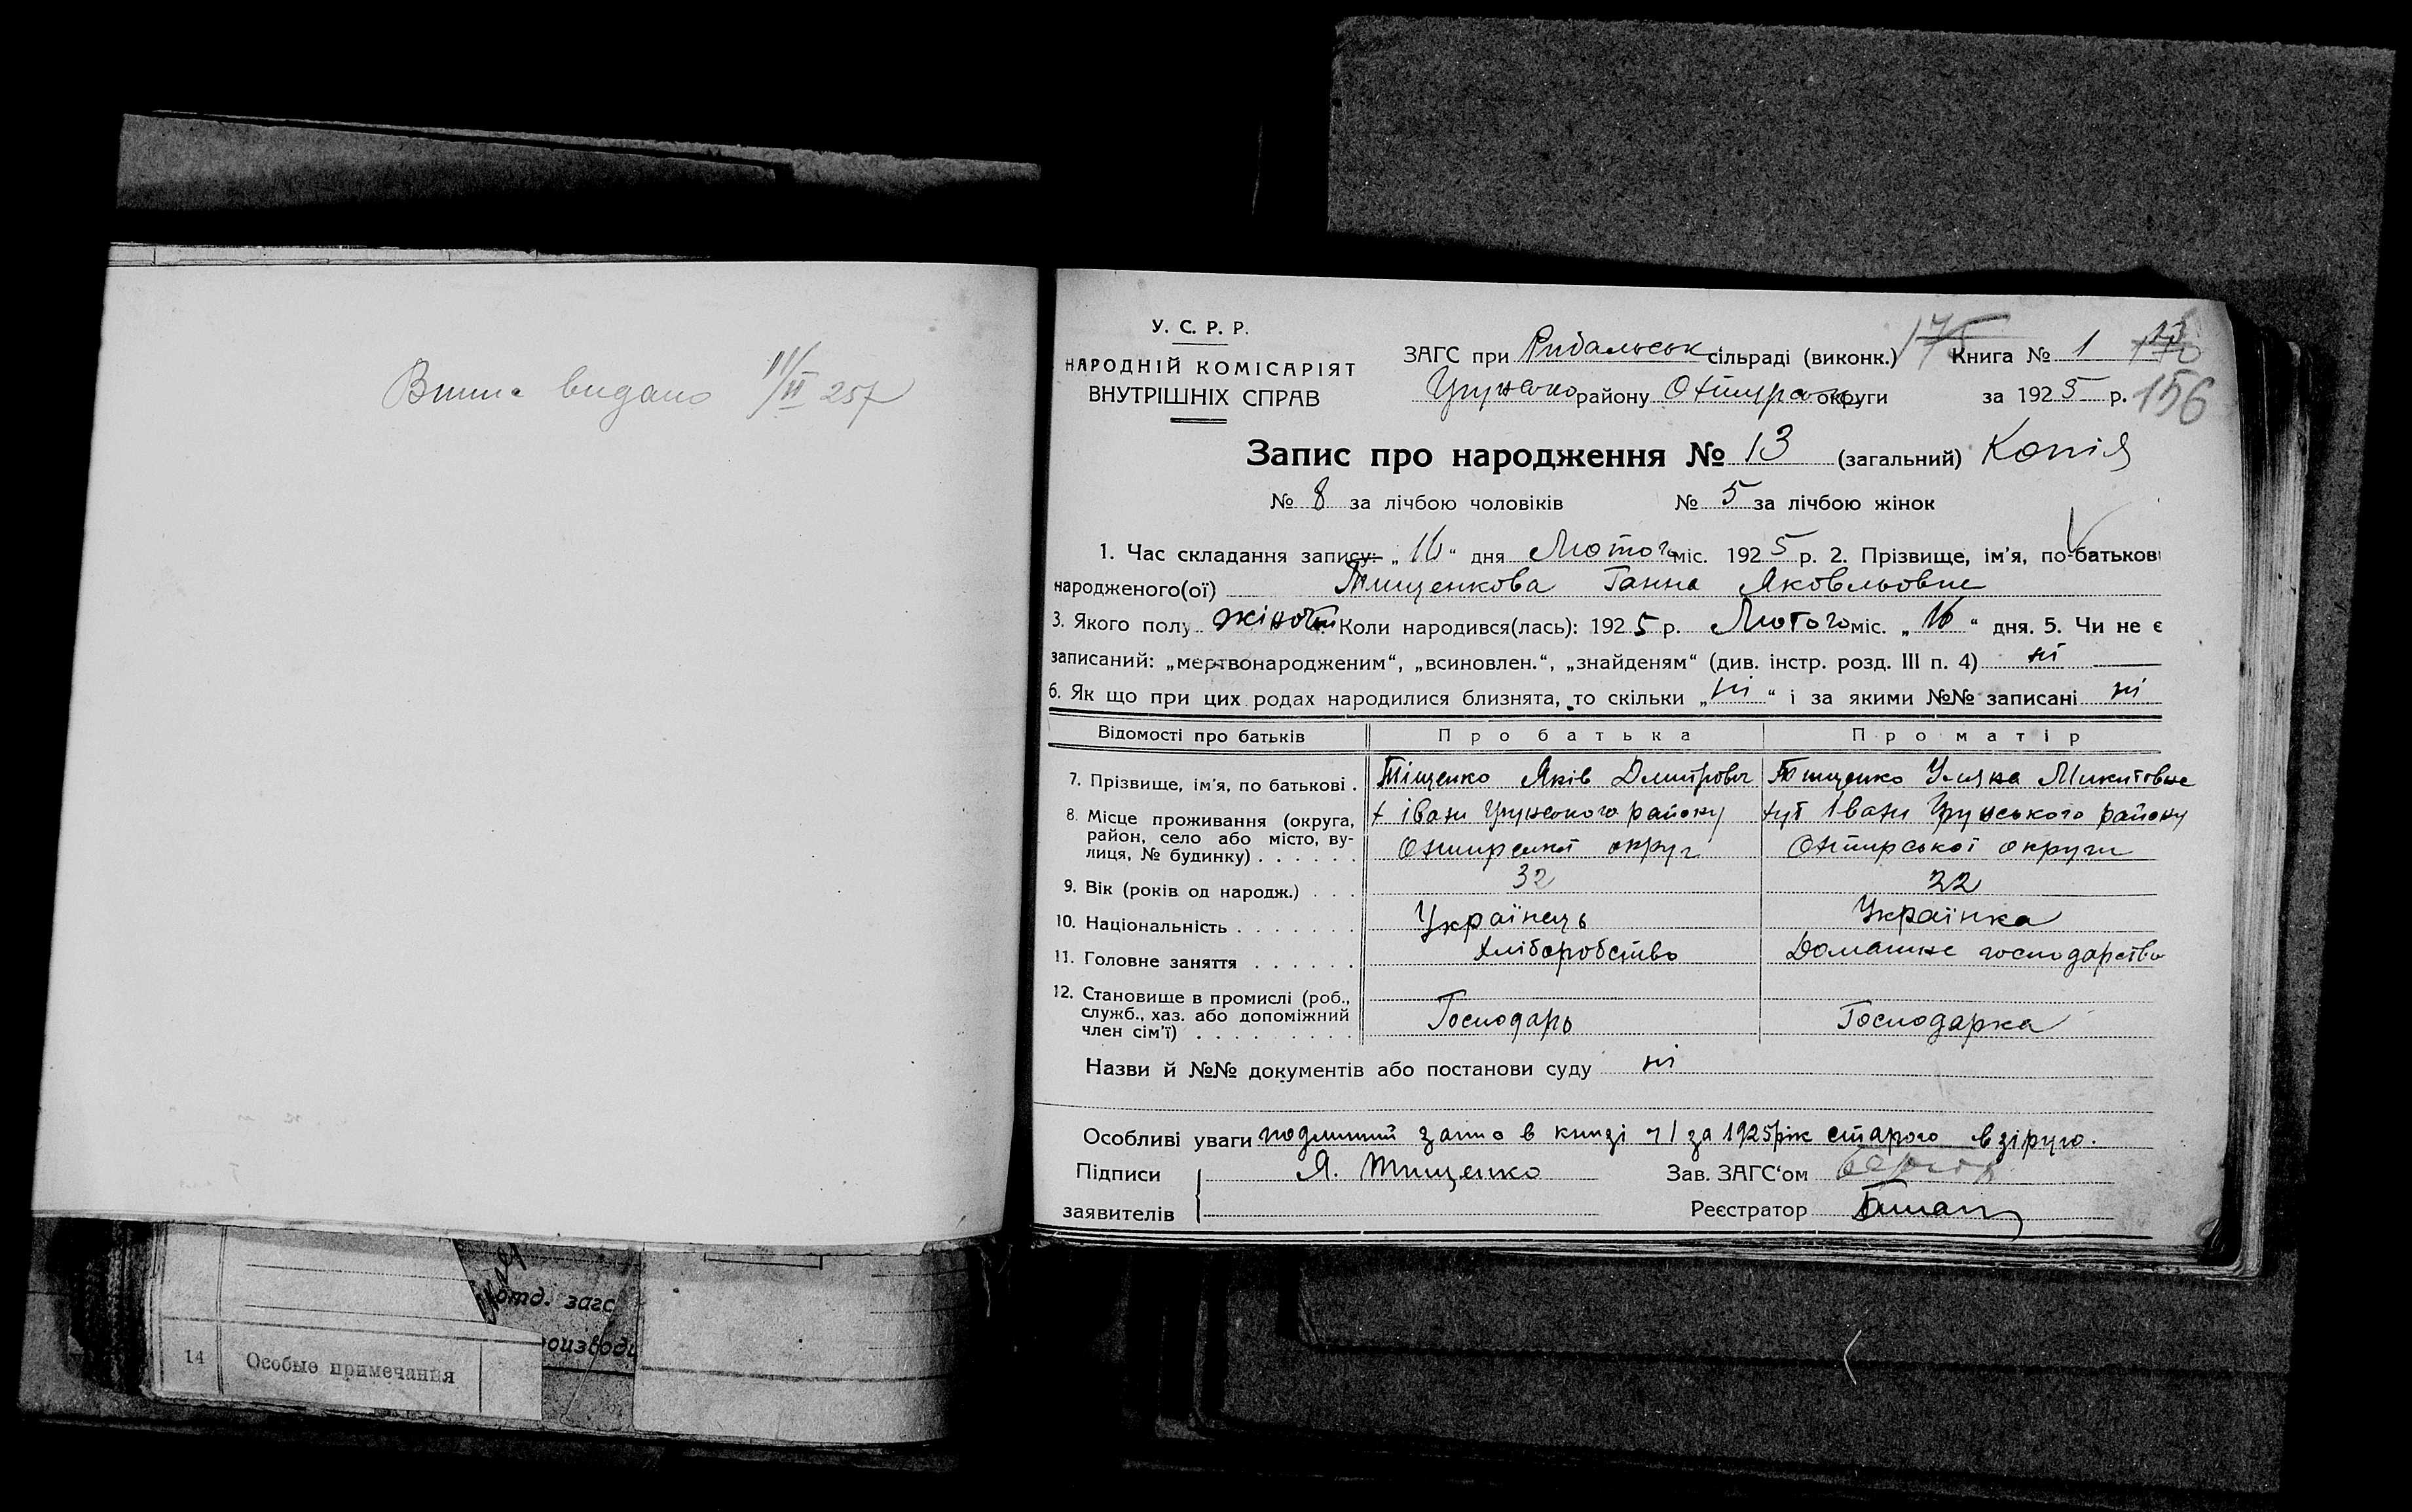 видано 11/II 257
У. С. Р. Р.
НАРОДНІЙ КОМІСАРІЯТ
ВНУТРІШНІХ СПРАВ
ЗАГС при Рибальськ сільраді (виконк.) 175 Книга № 1 13
Грунсько району Охтирськ округи за 1925 р. 156
Запис про народження № 13 (загальний) Копія
№ 8 за лічбою чоловіків № 5 за лічбою жінок
1. Час складання запису: „16“ дня Лютого міс. 1925 р. 2. Прізвище, ім'я, по-батькові
народженого(ої) Тищенкова Ганна Яковльовна
3. Якого полу жіноч Коли народився(лась): 1925 р. Лютого міс. „16“ дня. 5. Чи не є
записаний: „мертвонародженим“, „всиновлен.“, „знайденям“ (див. інстр. розд. III п. 4) ні
6. Як що при цих родах народилися близнята, то скільки „ні“ і за якими №№ записані ні
Відомості про батьків Про батька Про матір
7. Прізвище, ім'я, по батькові . Тіщенко Яків Дмитрович Тищенко Уляна Микитовне
8. Місце проживання (округа, район, село або місто, вулиця, № будинку) . . . . . .
х івани Грунського району хут Івани Грунського району
Охтирської округи Охтирської округи
9. Вік (років од народж.) . . . 32 22
10. Національність . . . . . . . Українець Українка
11. Головне заняття . . . . . . Хліборобство Домашнє господарство
12. Становище в промислі (роб.,
служб., хаз. або допоміжний
член сім'ї) . . . . . . . . . Господарь Господарка
Назви й №№ документів або постанови суду ні
Особливі уваги в книзі ч 1 за 1925 рік старого взірцю.
Підписи Я. Тищенко Зав. ЗАГС'ом
заявителів Реєстратор
отд. загс
14 Особые примечания